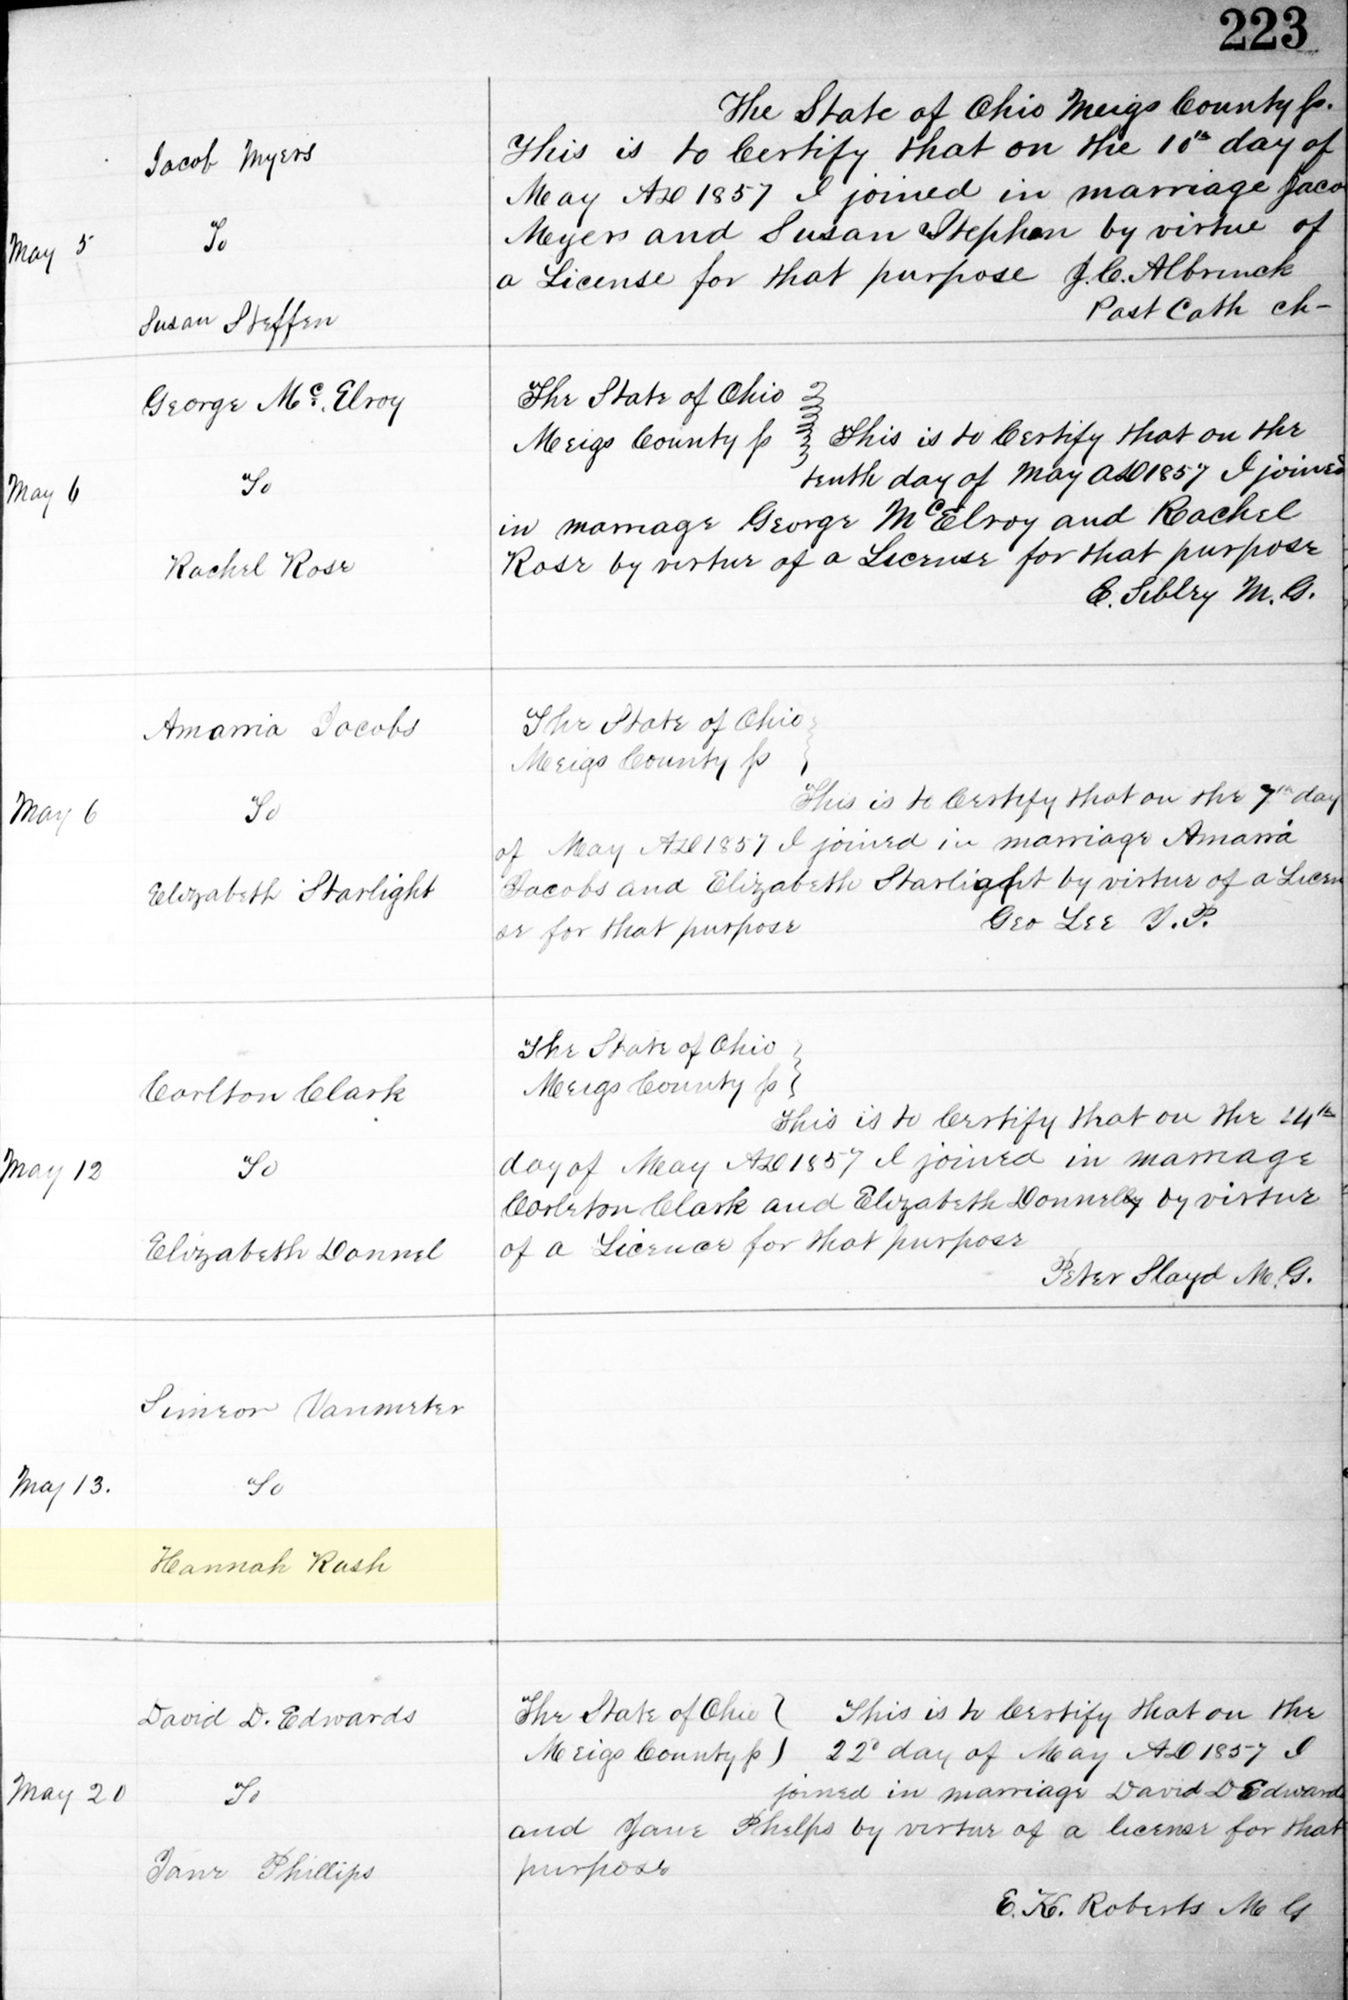 223
Jacob Myers
May 5
To
Susan Steffen
The State of Ohio Meigs County ss.
This is to Certify that on the 10th day of
May AD 1857 I joined in marriage Jaco
Meyers and Susan Stephen by virtue of
a License for that purpose J. C. Albrinck
Past Cath ch-
George Mc. Elroy
May 6
To
Rachel Rose
The State of Ohio
Meigs County ss This is to Certify that on the
tenth day of May AD 1857 I joined
in marriage George McElroy and Rachel
Rose by virtue of a License for that purpose
E. Sibley M. G.
Amarria Jacobs
May 6
To
Elizabeth Starlight
The State of Ohio
Meigs County ss
This is to Certify that on the 7th day
of May AD 1857 I joined in marriage Amarria
Jacobs and Elizabeth Starlight by virtue of a Licen
se for that purpose Geo Lee J. P.
Carlton Clark
May 12
To
Elizabeth Donnel
The State of Ohio
Meigs County ss
This is to Certify that on the 14th
day of May AD 1857 I joined in marriage
Carleton Clark and Elizabeth Donnelly by virtue
of a Licence for that purpose
Peter Slayd M. G.
Simeon Vanmeter
May 13.
To
Hannah Rush
David D. Edwards
May 20
To
Jane Phillips
The State of Ohio This is to Certify that on the
Meigs County ss 22d day of May AD 1857 I
joined in marriage David D Edwards
and Jane Phelps by virtue of a license for that
purpose
E. K. Roberts M G